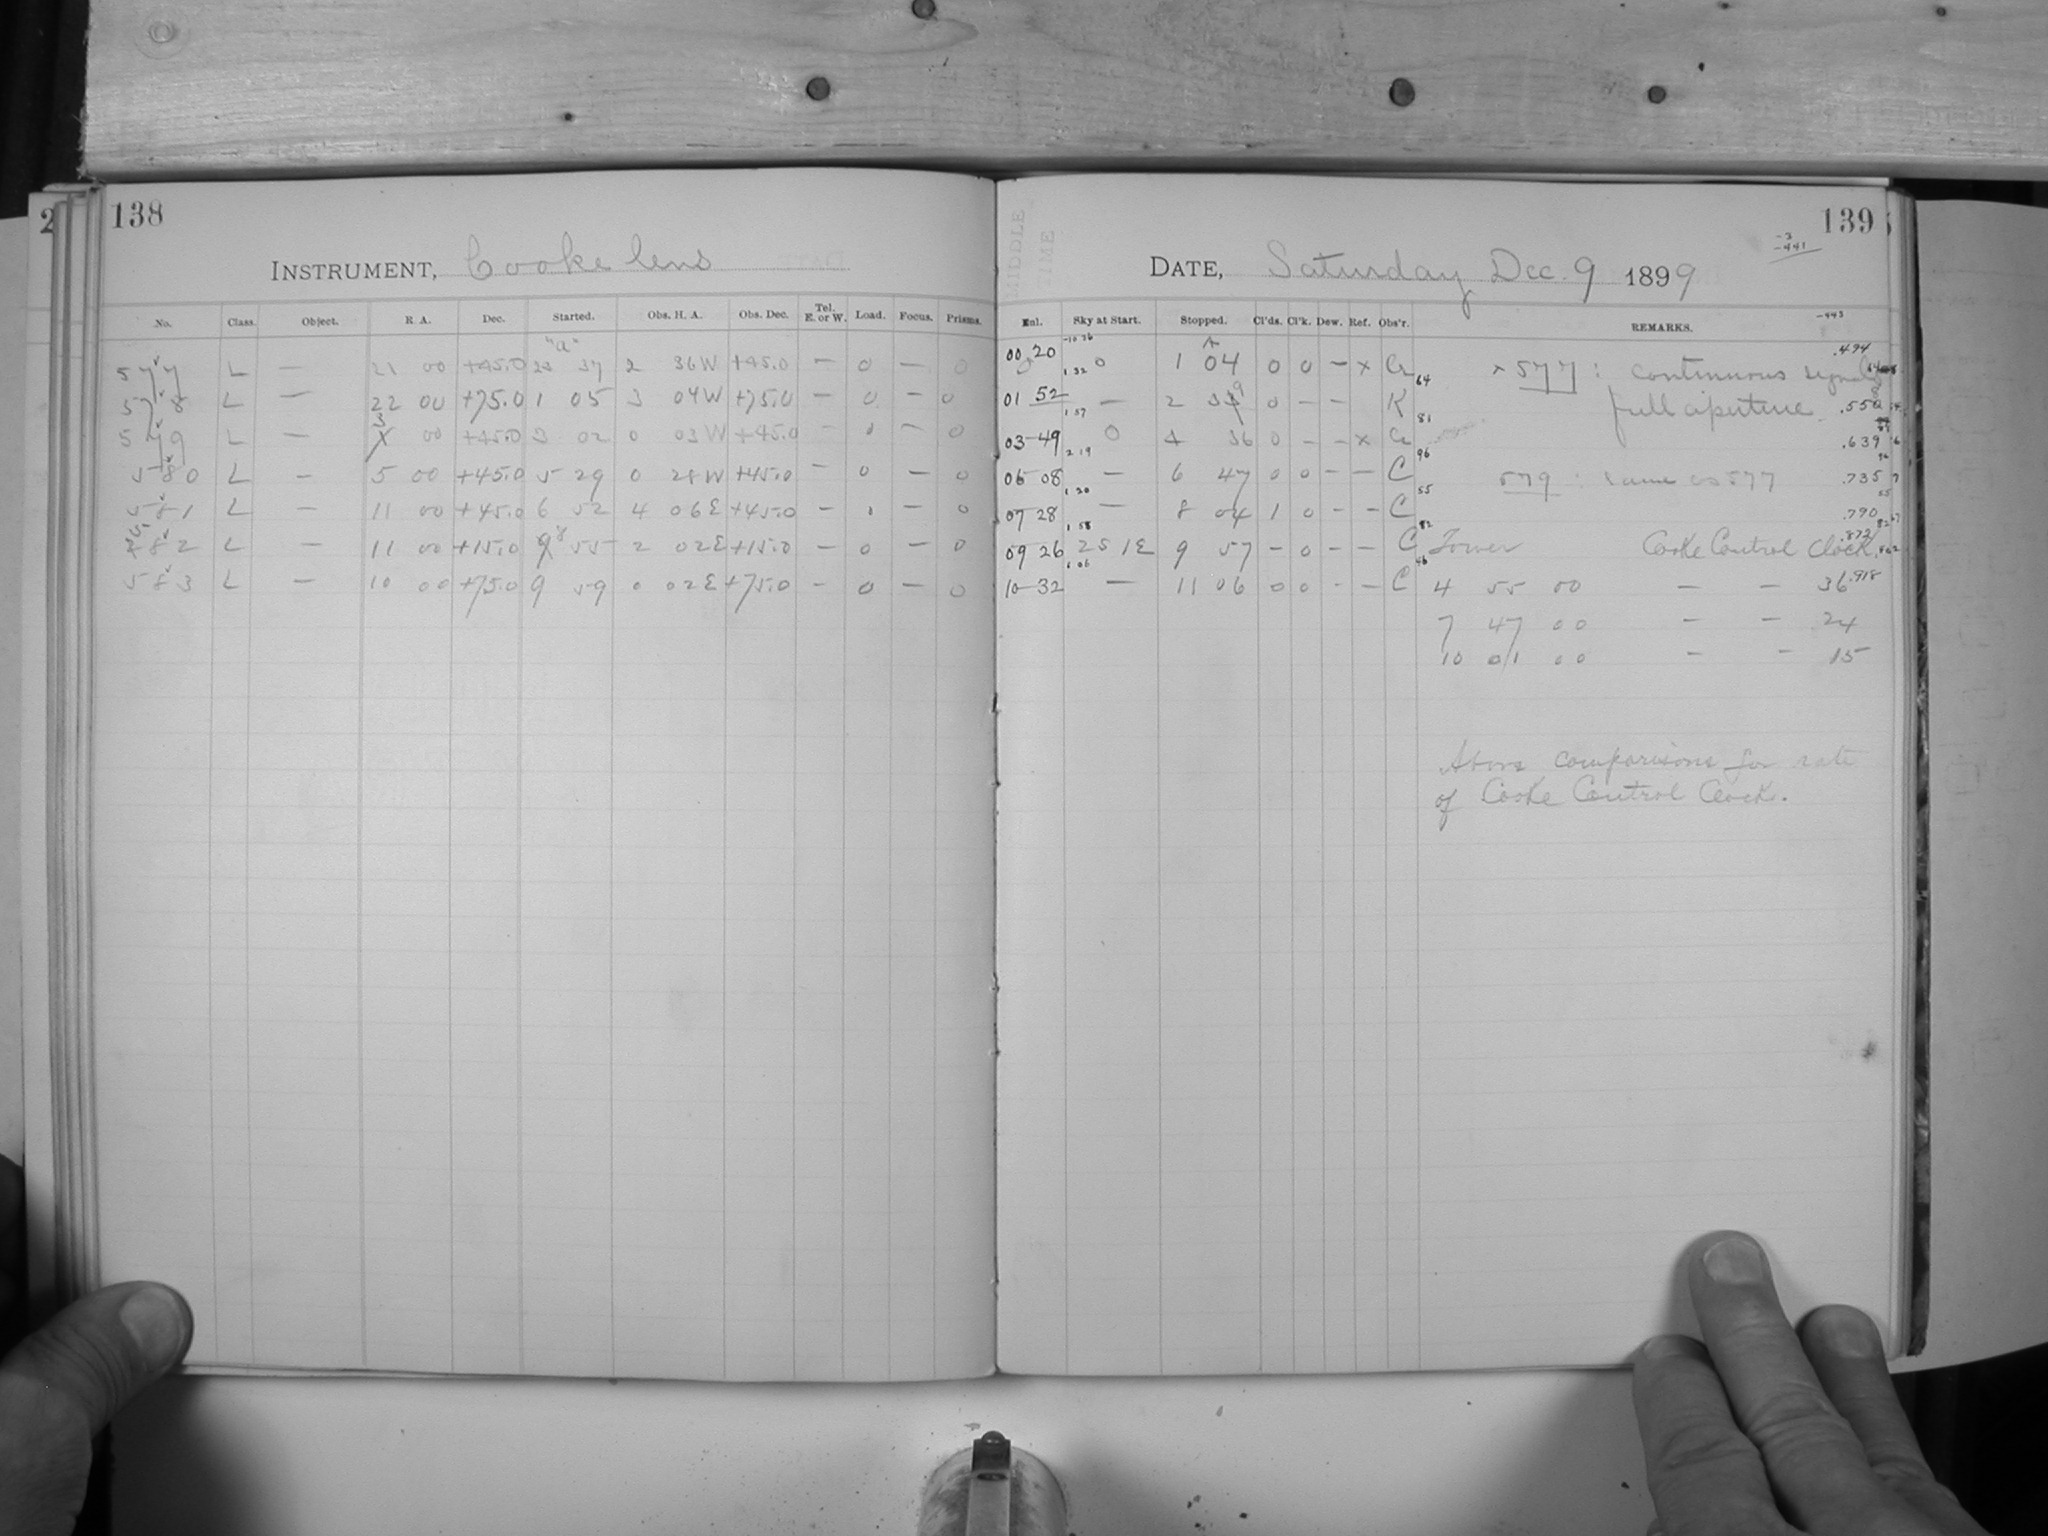 138
INSTRUMENT, Cooke lens
No. Class. Object. R. A. Dec. Started. Obs. H. A. Obs. Dec. Tel. E. or W. Load. Focus. Prisms.
"a"
577 L — 21 00 +45.0 23 37 2 36W +45.0 — 0 — 0
578 L — 22 00 +75.0 1 05 3 04W +75.0 — 0 — 0
579 L — 3 00 +45.0 3 02 0 03W +45.0 — 1 — 0
580 L — 5 00 +45.0 5 29 0 28W +45.0 — 0 — 0
581 L — 11 00 +45.0 6 52 4 06E +45.0 — 1 — 0
582 L — 11 00 +15.0 8 55 2 02E +15.0 — 0 — 0
583 L — 10 00 +75.0 9 59 0 02E +75.0 — 0 — 0
139
-3
-441
DATE, Saturday Dec. 9 1899
MIDDLE TIME
Enl. Sky at Start. Stopped. Cl'ds. Cl'k. Dew. Ref. Obs'r. REMARKS.
-443
.494
00 20 0 1 04 0 0 — x Cr x 577 : continuous signals
1 32 64
01 52 — 2 39 0 — — K full aperture .558
1 57 81
03-49 0 4 36 0 — — x Cr .639
2 19 96
06 08 — 6 47 0 0 — — C 579 : same as 577 .735
1 20 55
07 28 — 8 04 1 0 — — C .790
1 58 82 .872
09 26 2S 1E 9 57 — 0 — — C Tower Cooke Control Clock
1 06 46
10-32 — 11 06 0 0 — — C 4 55 00 — — 36 .918
7 47 00 — — 24
10 01 00 — — 15
Above comparisons for rate
of Cooke Control Clock.